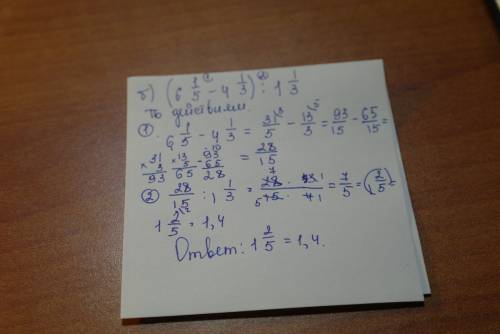 б) (6 1/5 - 4 1/3) : 1 1/3
По действиям.
① 6 1/5 - 4 1/3 = 31/5 - 13/3 = 93/15 - 65/15 =
= 28/15
× 31 3 93
× 13 5 65
- 93 65 28
② 28/15 : 1 1/3 = 28 · 3 / 15 · 4 = 7/5 = 1 2/5 =
1 2/5 = 1,4
Ответ: 1 2/5 = 1,4.